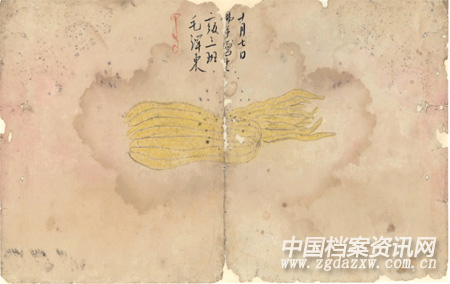 十月七日
佛手寫生
二級二班
毛澤東
中国档案资讯网
www.zgdazxw.com.cn